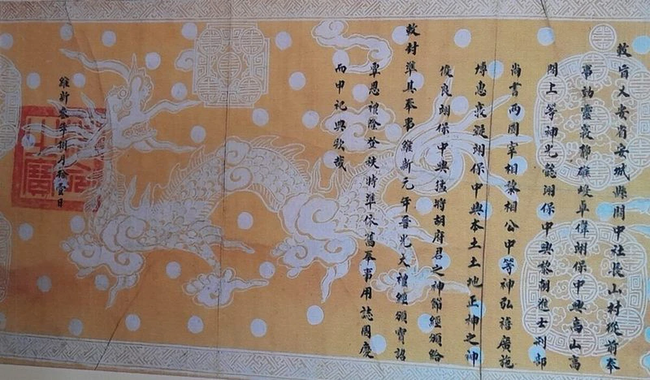 敕旨乂安省安城縣関中社長山村從前奉
事靈哀靜雄峻卓偉翊保中興高山高
閣上等神光懿翊保中興黎朝進士刑部
尚書兩國宰相黎相公中等神弘禧廣施
惠翊保中興本土土地正神之神
俊良翊保中興後將胡府君之神節經頒給
敕封準其奉事維新元年晉光大禮經頒寶詔
覃恩禮隆登秩特準依舊奉事用誌國慶
而申祀典欽哉
維新叁年捌月拾壹日